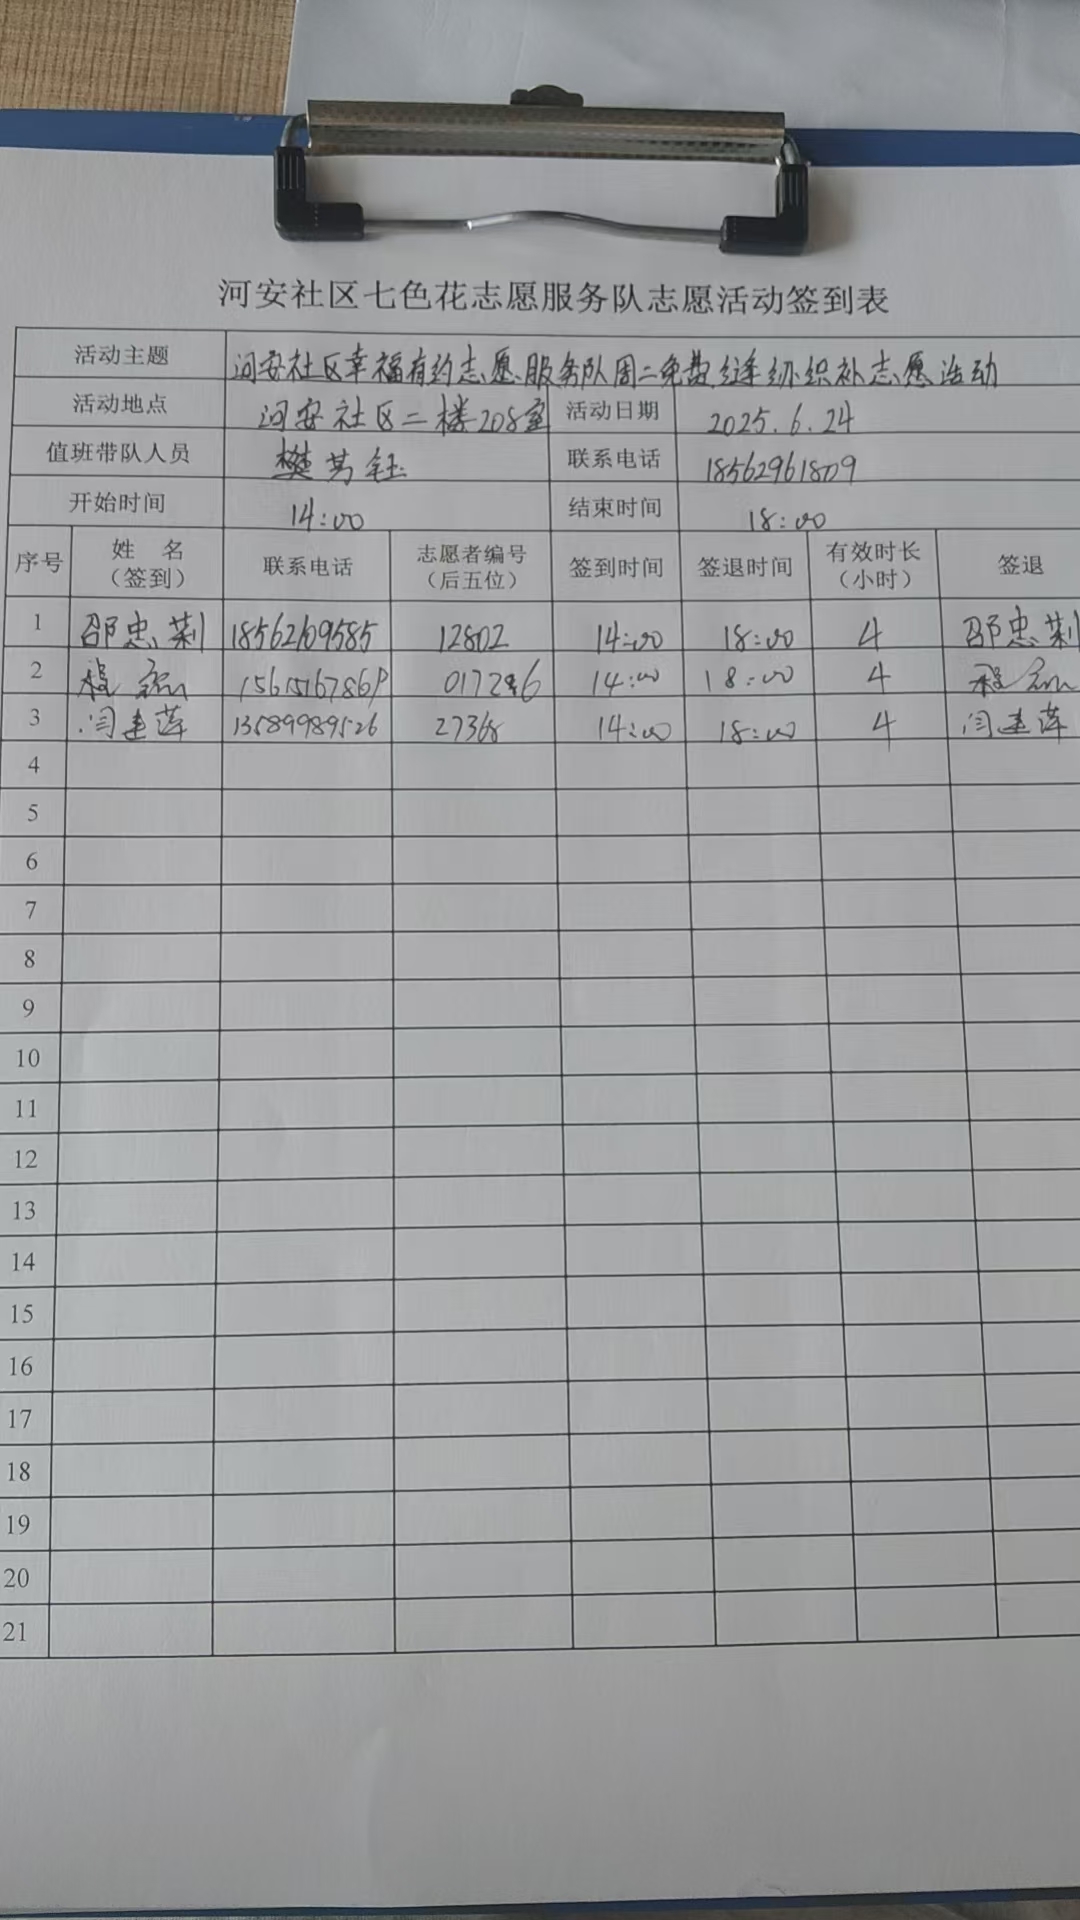 河安社区七色花志愿服务队志愿活动签到表
活动主题 河安社区幸福有约志愿服务队周二免费缝纫织补志愿活动
活动地点 河安社区二楼208室 活动日期 2025.6.24
值班带队人员 樊芳钰 联系电话 18562961809
开始时间 14:00 结束时间 18:00
序号 姓 名（签到） 联系电话 志愿者编号（后五位） 签到时间 签退时间 有效时长（小时） 签退
1 邵忠莉 18562109585 12802 14:00 18:00 4 邵忠莉
2 14:00 18:00 4
3 闫建莲 13589989526 27368 14:00 18:00 4 闫建莲
4
5
6
7
8
9
10
11
12
13
14
15
16
17
18
19
20
21